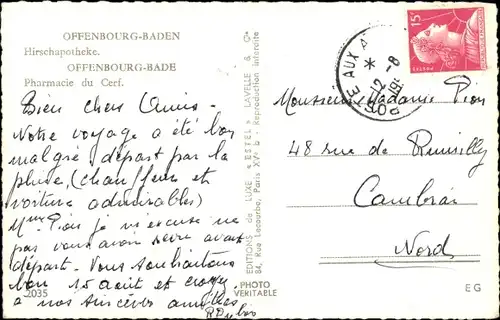 OFFENBOURG-BADEN
Hirschapotheke.
OFFENBOURG-BADE
Pharmacie du Cerf.
Bien chers Amis
Notre voyage a été bon
malgré départ par la
pluie, (chauffeur et
voiture admirables)
Mme Pion je m'excuse ne
pas vous avoir avant
départ. Vous souhaitons
bon 15 août et croyez
à nos sincères amitiés
2035
EDITIONS de LUXE « ESTEL » LAVELLE & Cie
84, Rue Lecourbe, Paris XVe - Reproduction interdite
PHOTO
VERITABLE
POSTE AUX A
12 -8
15F
Monsieur Madame Pion
48 rue de Rumilly
Cambrai
Nord
EG